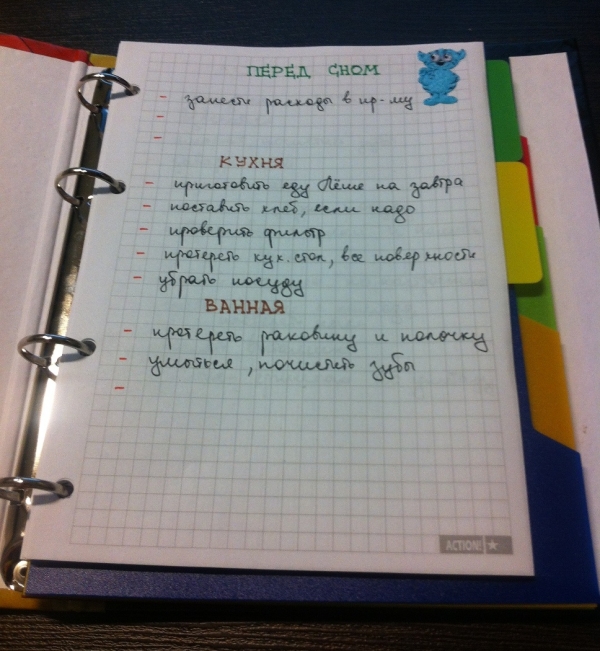 ПЕРЕД СНОМ
- занести расходы в пр-му
-
-
КУХНЯ
- приготовить еду Лёше на завтра
- поставить хлеб, если надо
- проверить фильтр
- протереть кух. стол, все поверхности
- убрать посуду
ВАННАЯ
- протереть раковину и полочку
- умыться, почистить зубы
-
ACTION!